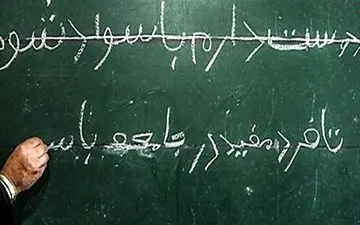 دوست دارم باسواد شوم
تا فرد مفیدی در جامعه باش